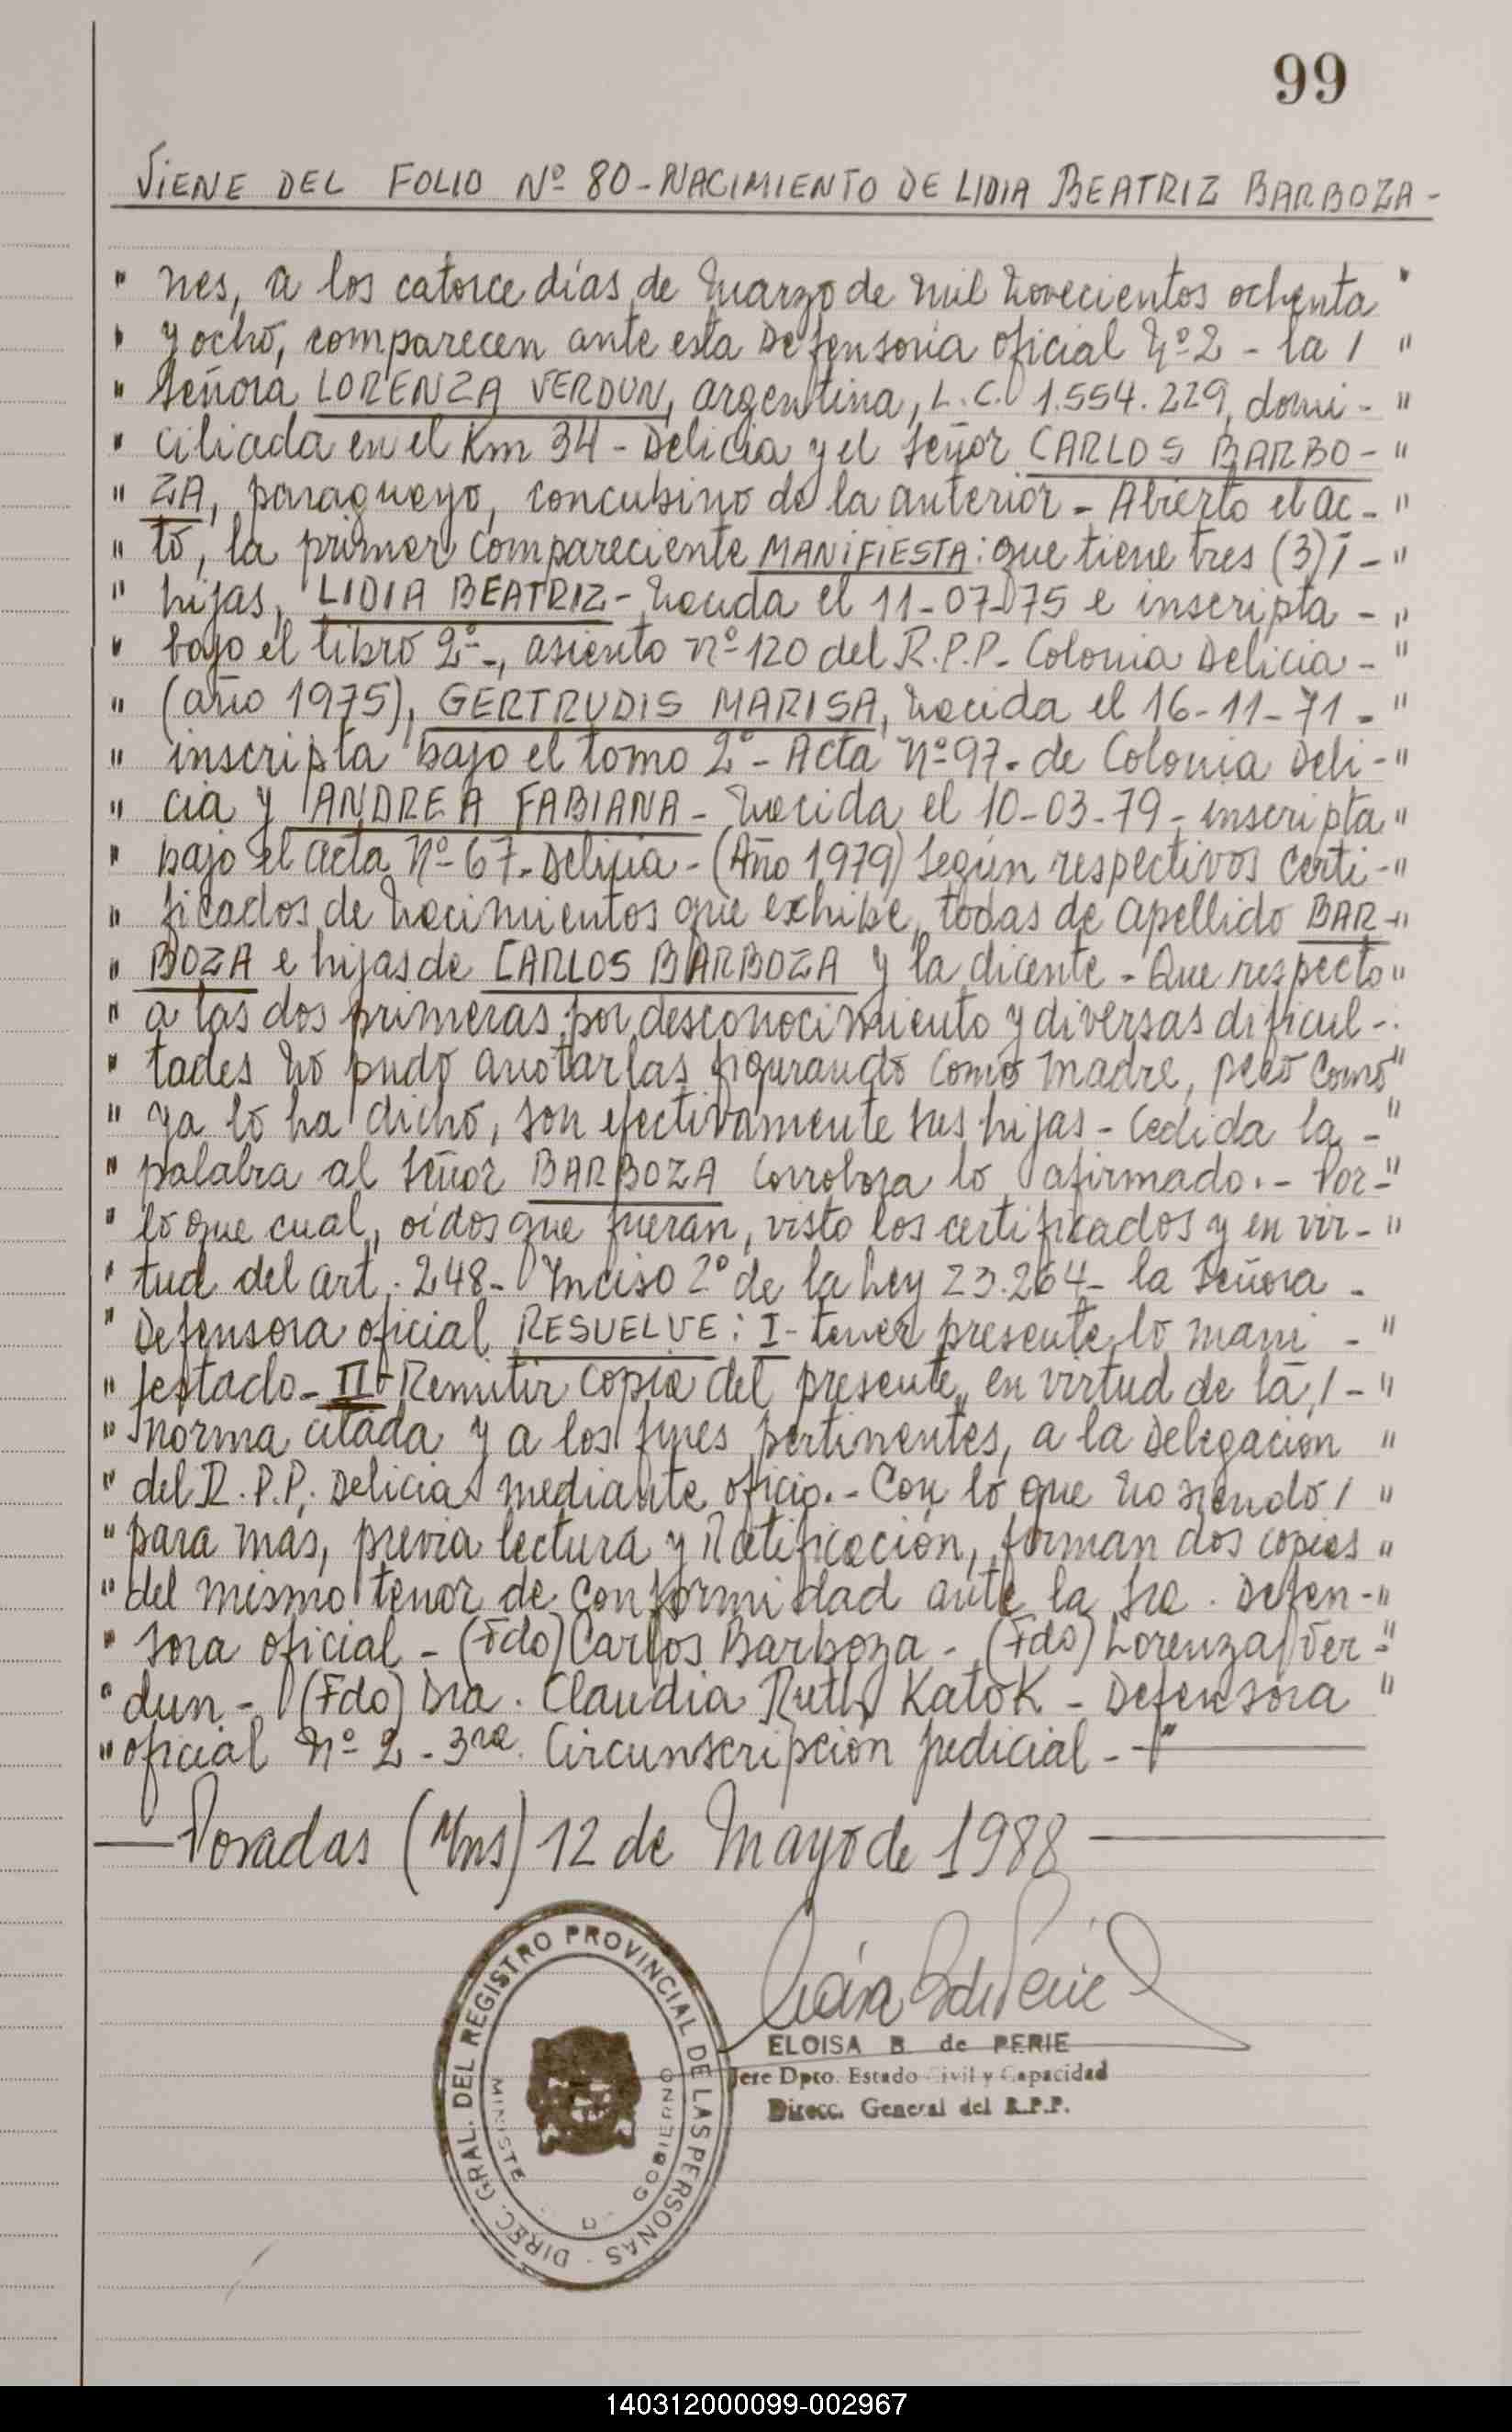 99
VIENE DEL FOLIO Nº 80 - NACIMIENTO DE LIDIA BEATRIZ BARBOZA -
" nes, a los catorce días de marzo de mil novecientos ochenta "
" y ocho, comparecen ante esta Defensoria oficial Nº 2 - la / "
" señora LORENZA VERDUN, argentina, L.C. 1.554.229, domi - "
" ciliada en el Km 34 - Delicia y el señor CARLOS BARBO - "
" ZA, paraguayo, concubino de la anterior - Abierto el ac - "
" to, la primer compareciente MANIFIESTA: que tiene tres (3) / - "
" hijas, LIDIA BEATRIZ - nacida el 11-07-75 e inscripta - "
" bajo el libro 2º -, asiento nº 120 del R.P.P. - Colonia Delicia - "
" (año 1975), GERTRUDIS MARISA, nacida el 16-11-71 - "
" inscripta bajo el tomo 2º - Acta Nº 97 - de Colonia Deli - "
" cia y ANDREA FABIANA - nacida el 10-03-79 - inscripta "
" bajo el acta Nº 67 - Delicia - (Año 1979) según respectivos certi - "
" ficados de nacimientos que exhibe, todas de apellido BAR - "
" BOZA e hijas de CARLOS BARBOZA y la dicente - Que respecto "
" a las dos primeras, por desconocimiento y diversas dificul - "
" tades no pudo anotarlas figurando como madre, pero como "
" ya lo ha dicho, son efectivamente sus hijas - Cedida la - "
" palabra al señor BARBOZA corrobora lo afirmado. - Por - "
" lo que cual, oídos que fueran, visto los certificados y en vir - "
" tud del art. 248 - Inciso 2º de la Ley 23.264 - la Señora -
" Defensora oficial RESUELVE: I - tener presente lo mani - "
" festado - II - Remitir copia del presente, en virtud de la / - "
" norma citada y a los fines pertinentes, a la Delegación "
" del R.P.P. Delicia mediante oficio. - Con lo que no siendo / "
" para más, previa lectura y Ratificación, firman dos copias "
" del mismo tenor de conformidad ante la Sra. Defen - "
" sora oficial - (Fdo) Carlos Barboza - (Fdo) Lorenza Ver - "
" dun - (Fdo) Dra. Claudia Ruth Katok - Defensora "
" oficial Nº 2 - 3ra. Circunscripción judicial - "
— Posadas (Mns) 12 de Mayo de 1988 —
DIREC. GRAL. DEL REGISTRO PROVINCIAL DE LAS PERSONAS
MINISTE D GOBIERNO
ELOISA B. de PERIE
Jefe Dpto. Estado Civil y Capacidad
Direcc. General del R.P.P.
140312000099-002967